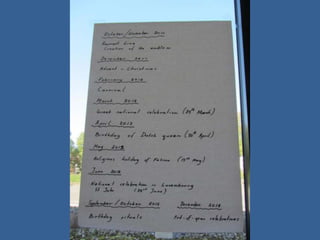 October/November 2011
Creation of the emblem
December 2011
Advent - Christmas
February 2012
Carnival
March 2012
Greek national celebration (25th March)
April 2012
Birthday of Dutch queen (30th April)
May 2012
Religious holiday of Fatima (13th May)
June 2012
National celebration in Luxembourg
St John (24th June)
September/October 2012
Birthday rituals
December 2012
End-of-year celebrations